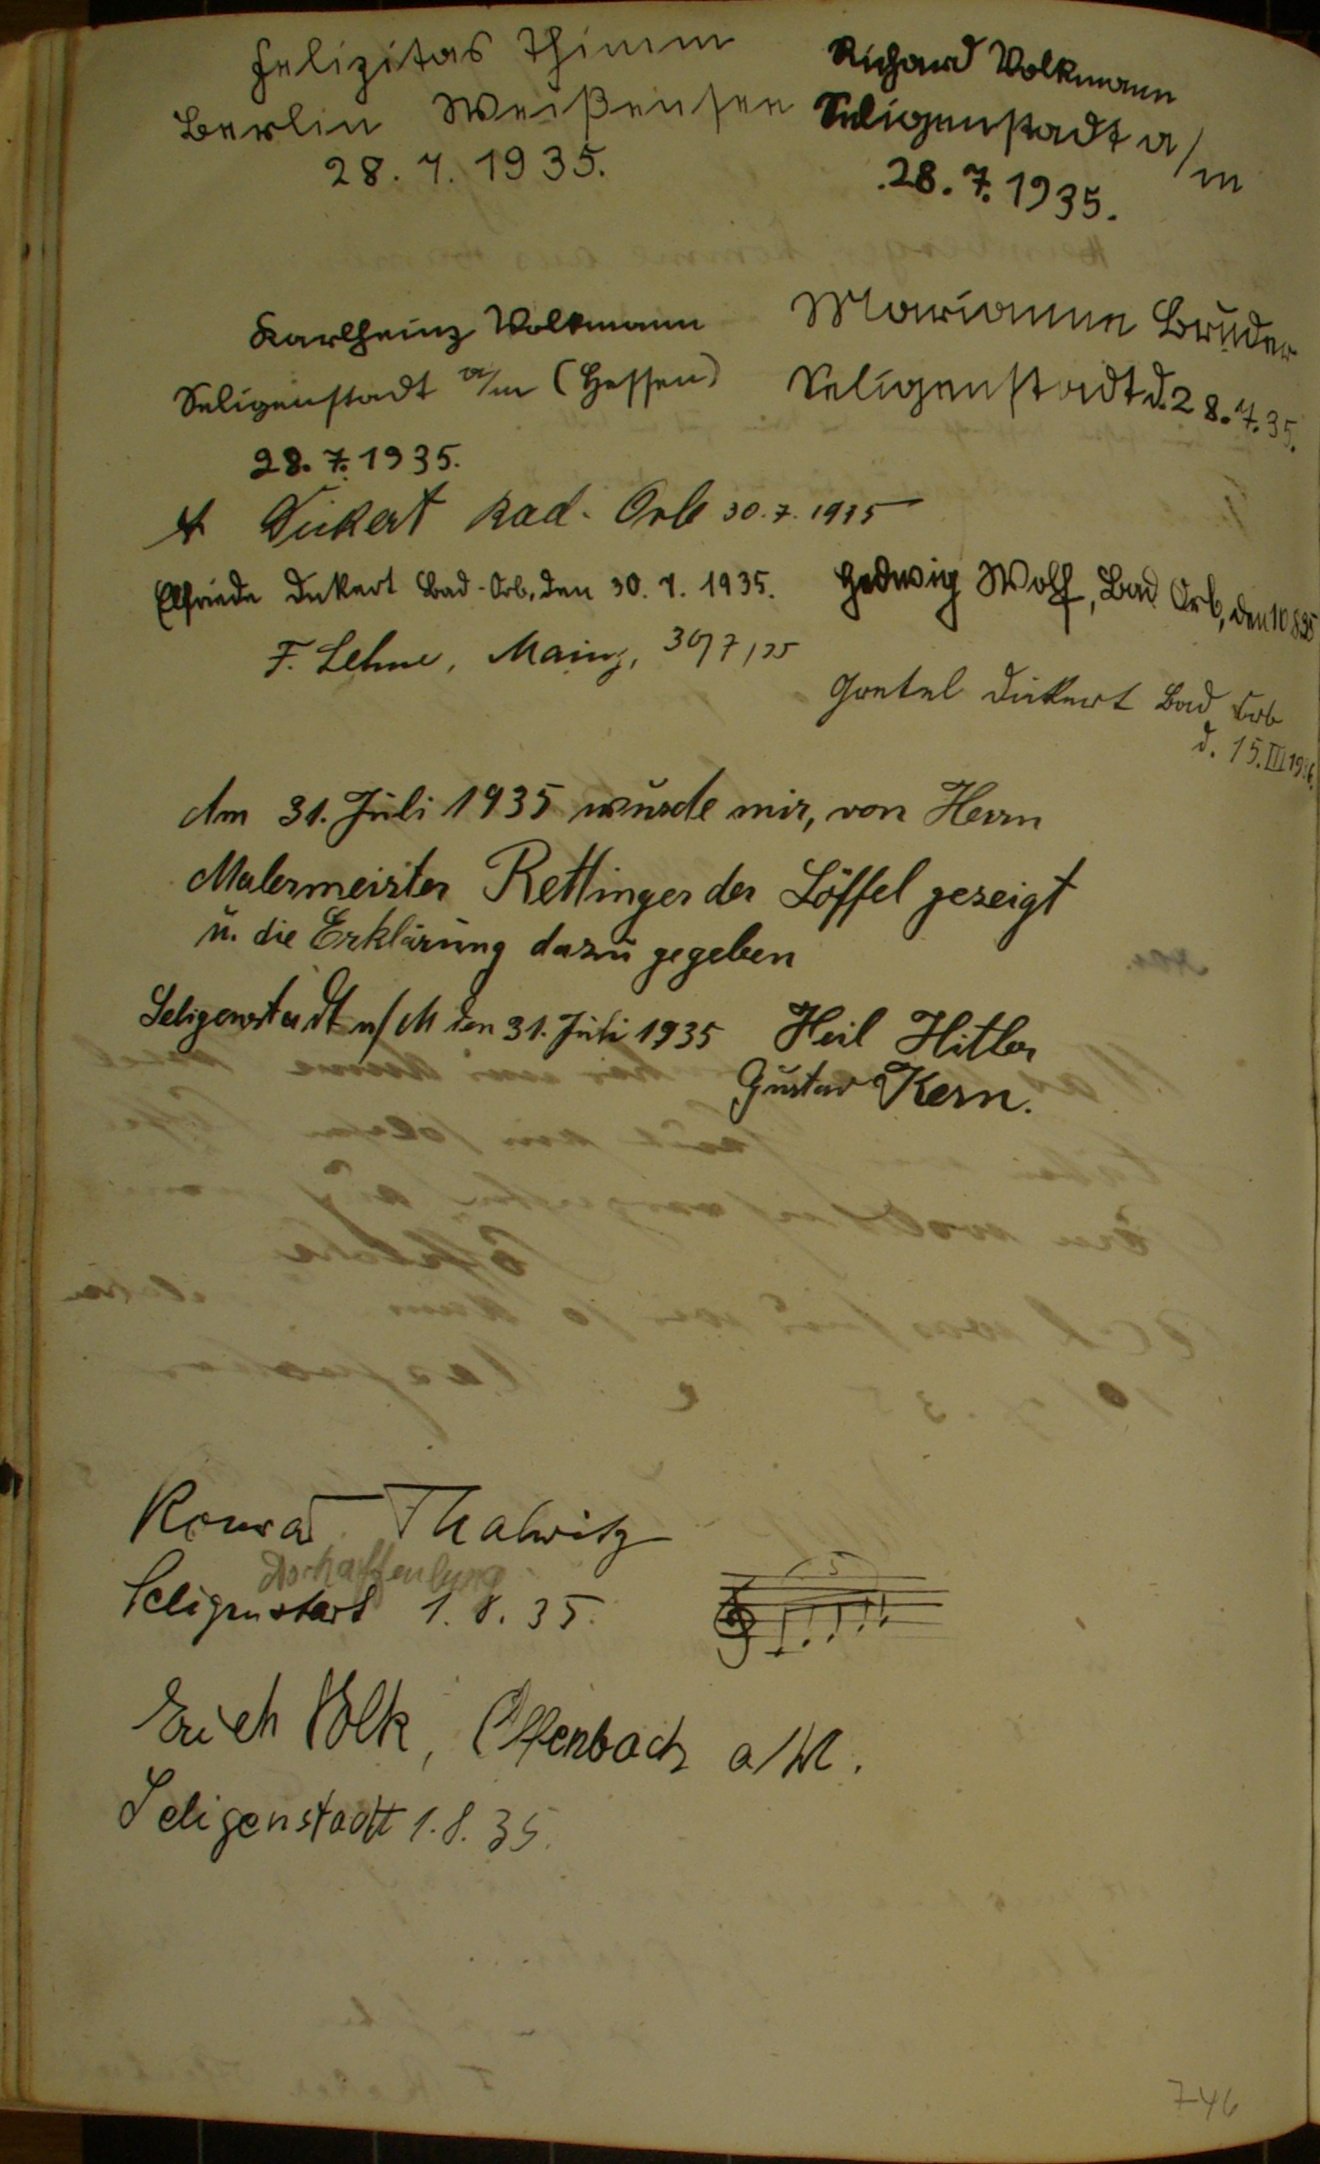 Felizitas Thimm
Berlin Weißensee
28. 7. 1935.
Richard Volkmann
Seligenstadt a/m
28. 7. 1935.
Karlheinz Volkmann
Seligenstadt a/m (Hessen)
28. 7. 1935.
Marianne Bruder
Seligenstadt d. 28. 7. 35.
Dickert Bad-Orb 30. 7. 1935
Elfriede Dickert Bad-Orb, den 30. 7. 1935.
Hedwig Wolf, Bad Orb, den 10 8 35
F. Lehne, Mainz, 30/7/35
Gretel Dickert Bad Orb
d. 15. III 1936.
Am 31. Juli 1935 wurde mir, von Herrn
Malermeister Rettinger der Löffel gezeigt
u. die Erklärung dazu gegeben
Seligenstadt a/M den 31. Juli 1935
Heil Hitler
Gustav Kern.
Konrad Thalwitz
Aschaffenburg
Seligenstadt 1. 8. 35.
5
Erich Volk, Offenbach a/M.
Seligenstadt 1. 8. 35.
746